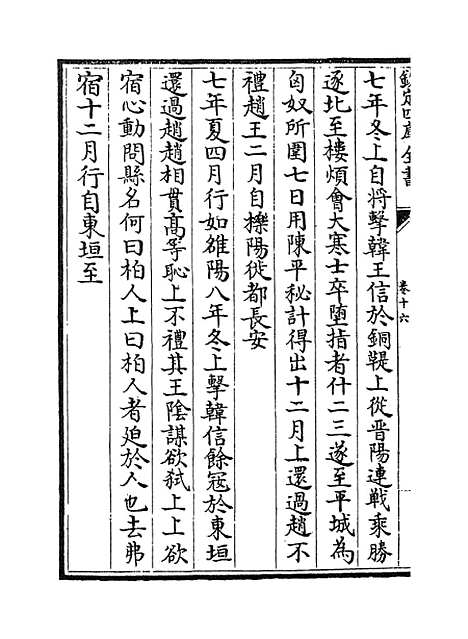 欽定四庫全書
卷十六
七年冬上自將擊韓王信於銅鞮上從晋陽連戰乘勝
逐北至樓煩會大寒士卒墮指者什二三遂至平城為
匈奴所圍七日用陳平秘計得出十二月上還過趙不
禮趙王二月自擽陽徙都長安
七年夏四月行如雒陽八年冬上擊韓信餘冦於東垣
還過趙趙相貫髙等恥上不禮其王陰謀欲弑上上欲
宿心動問縣名何曰柏人上曰柏人者廹於人也去弗
宿十二月行自東垣至